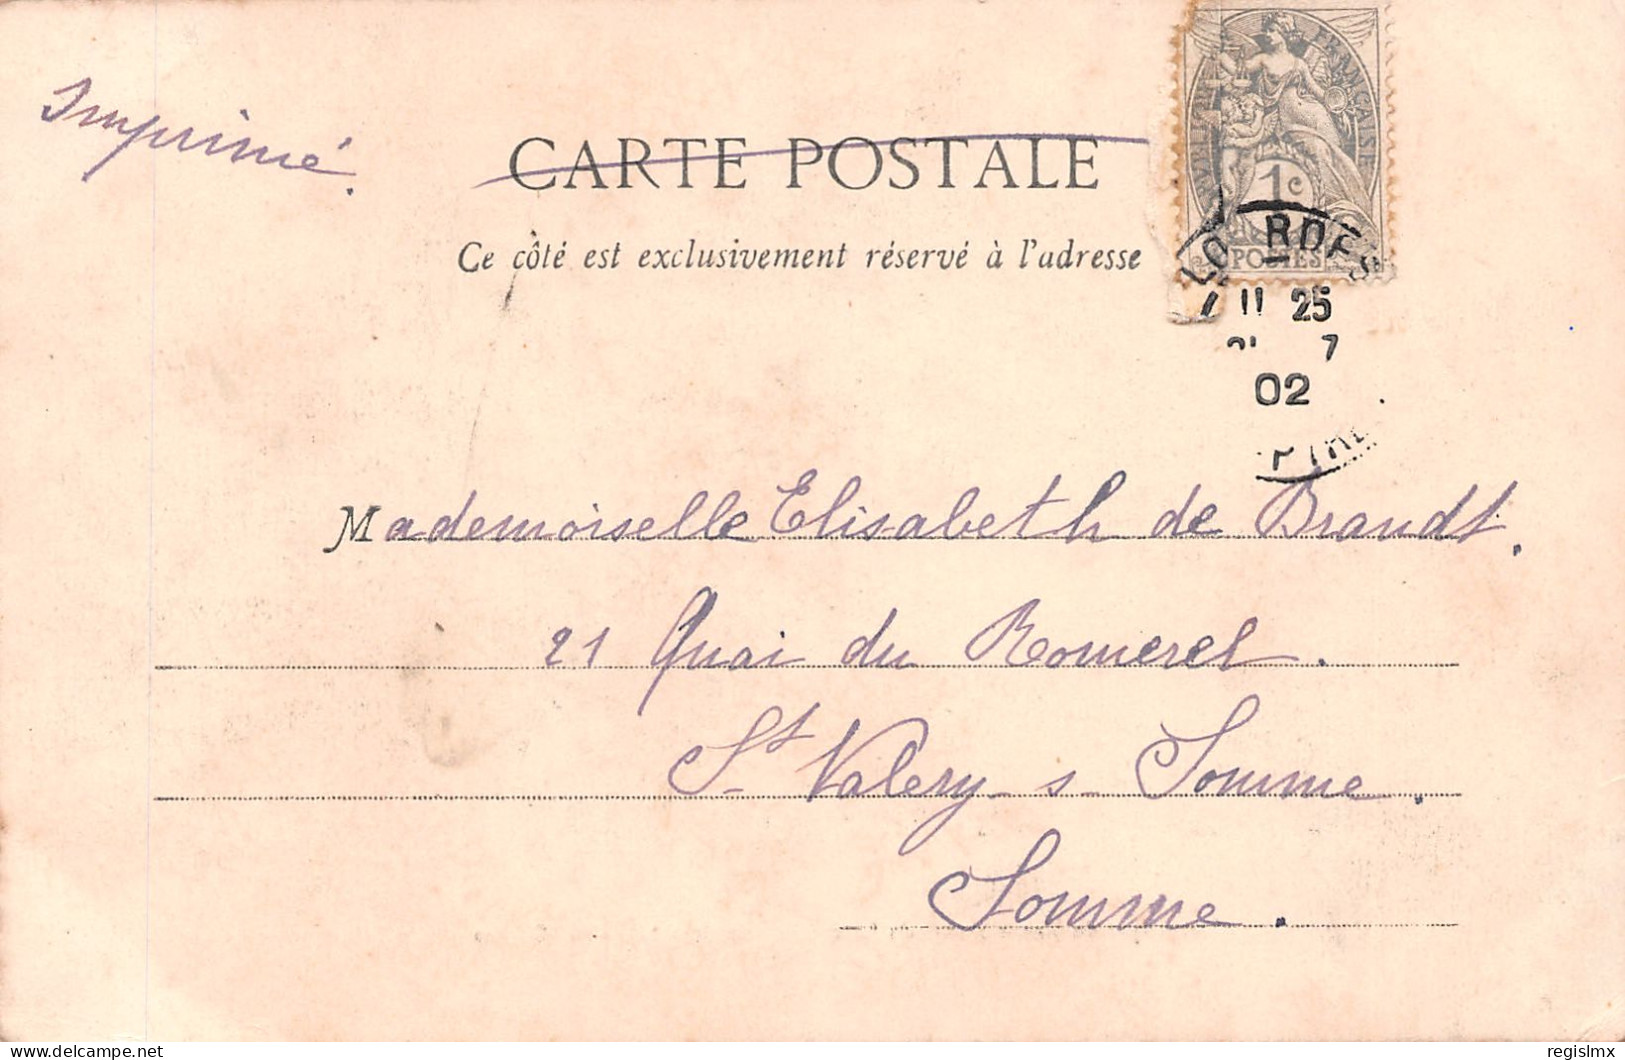 Imprimé.
CARTE POSTALE
Ce côté est exclusivement réservé à l'adresse
FRANÇAISE
1c
POSTES
LOURDES
11 25
7
02
Mademoiselle Elisabeth de Brandt.
21 Quai du Romerel.
St Valery-s-Somme.
Somme.
delcampe.net
regislmx